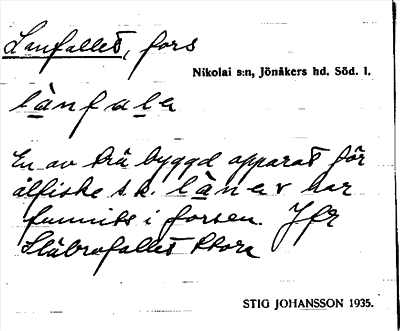 Lanfallet, fors
Nikolai s:n, Jönåkers hd. Söd. l.
lànfala
En av trä byggd apparat för
ålfiske s.k. lànar har
funnits i forsen. Jfr
Stäbrofallet Stora
STIG JOHANSSON 1935.